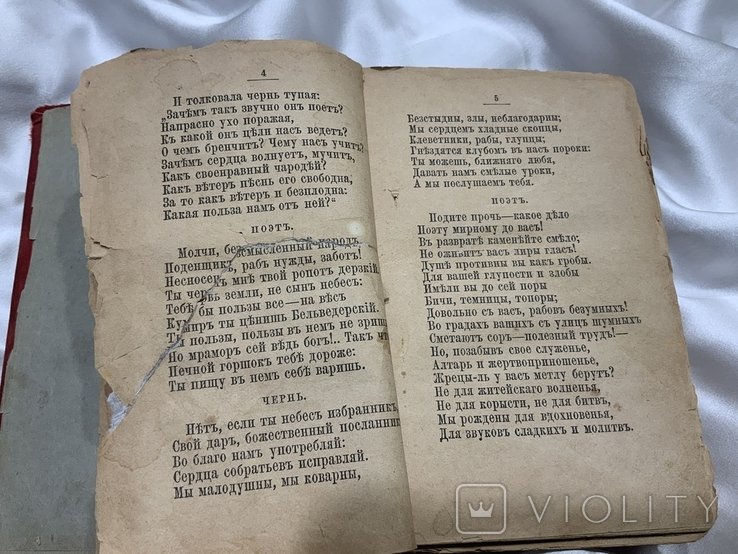 4
И толковала чернь тупая:
„Зачѣмъ такъ звучно онъ поетъ?
Напрасно ухо поражая,
Къ какой онъ цѣли насъ ведетъ?
О чемъ бренчитъ? Чему насъ учитъ?
Зачѣмъ сердца волнуетъ, мучитъ,
Какъ своенравный чародѣй?
Какъ вѣтеръ пѣснь его свободна,
За то какъ вѣтеръ и безплодна:
Какая польза намъ отъ ней?“
ПОЭТЪ.
Молчи, безсмысленный народъ,
Поденщикъ, рабъ нужды, заботъ!
Несносенъ мнѣ твой ропотъ дерзкій
Ты червь земли, не сынъ небесъ:
Тебѣ бы пользы все—на вѣсъ
Кумиръ ты цѣнишь Бельведерскій.
Ты пользы, пользы въ немъ не зришь
Но мраморъ сей вѣдь богъ!.. Такъ ч
Печной горшокъ тебѣ дороже:
Ты пищу въ немъ себѣ варишь.
ЧЕРНЬ.
Нѣтъ, если ты небесъ избранникъ,
Свой даръ, божественный посланник
Во благо намъ употребляй:
Сердца собратьевъ исправляй.
Мы малодушны, мы коварны,
5
Безстыдны, злы, неблагодарны;
Мы сердцемъ хладные скопцы,
Клеветники, рабы, глупцы;
Гнѣздятся клубомъ въ насъ пороки:
Ты можешь, ближняго любя,
Давать намъ смѣлые уроки,
А мы послушаемъ тебя.
ПОЭТЪ.
Подите прочь—какое дѣло
Поэту мирному до васъ!
Въ развратѣ каменѣйте смѣло;
Не оживитъ васъ лиры гласъ!
Душѣ противны вы какъ гробы.
Для вашей глупости и злобы
Имѣли вы до сей поры
Бичи, темницы, топоры;
Довольно съ васъ, рабовъ безумныхъ!
Во градахъ вашихъ съ улицъ шумныхъ
Сметаютъ соръ—полезный трудъ!—
Но, позабывъ свое служенье,
Алтарь и жертвоприношенье,
Жрецы-ль у васъ метлу берутъ?
Не для житейскаго волненья,
Не для корысти, не для битвъ,
Мы рождены для вдохновенья,
Для звуковъ сладкихъ и молитвъ.
VIOLITY